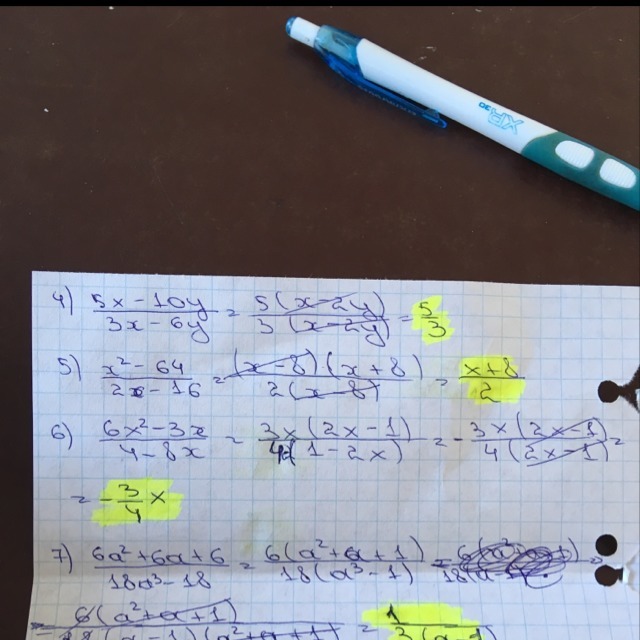 XR 30
4) 5x-10y / 3x-6y = 5(x-2y) / 3(x-2y) = 5/3
5) x²-64 / 2x-16 = (x-8)(x+8) / 2(x-8) = x+8 / 2
6) 6x²-3x / 4-8x = 3x(2x-1) / 4(1-2x) = - 3x(2x-1) / 4(2x-1) =
= -3/4 x
7) 6a²+6a+6 / 18a³-18 = 6(a²+a+1) / 18(a³-1) =
= 6(a²+a+1) / 18(a-1)(a²+a+1) = 1 / 3(a-1)